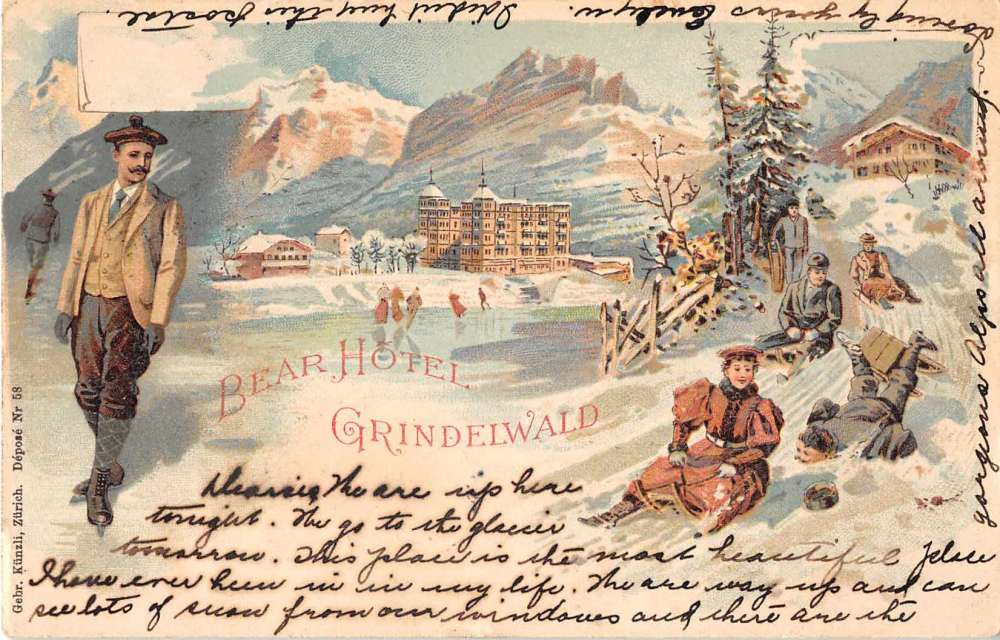 BEAR HÔTEL
GRINDELWALD
Gebr. Künzli, Zürich. Déposé Nr 58
Dearsie We are up here
tonight. We go to the glacier
tomorrow. This place is the most beautiful place
I have ever been in in my life. We are way up and can
see lots of snow from our windows and there are the
gorgeous Alps all around.
Lovingly yours Evelyn. I didn't buy this postal.